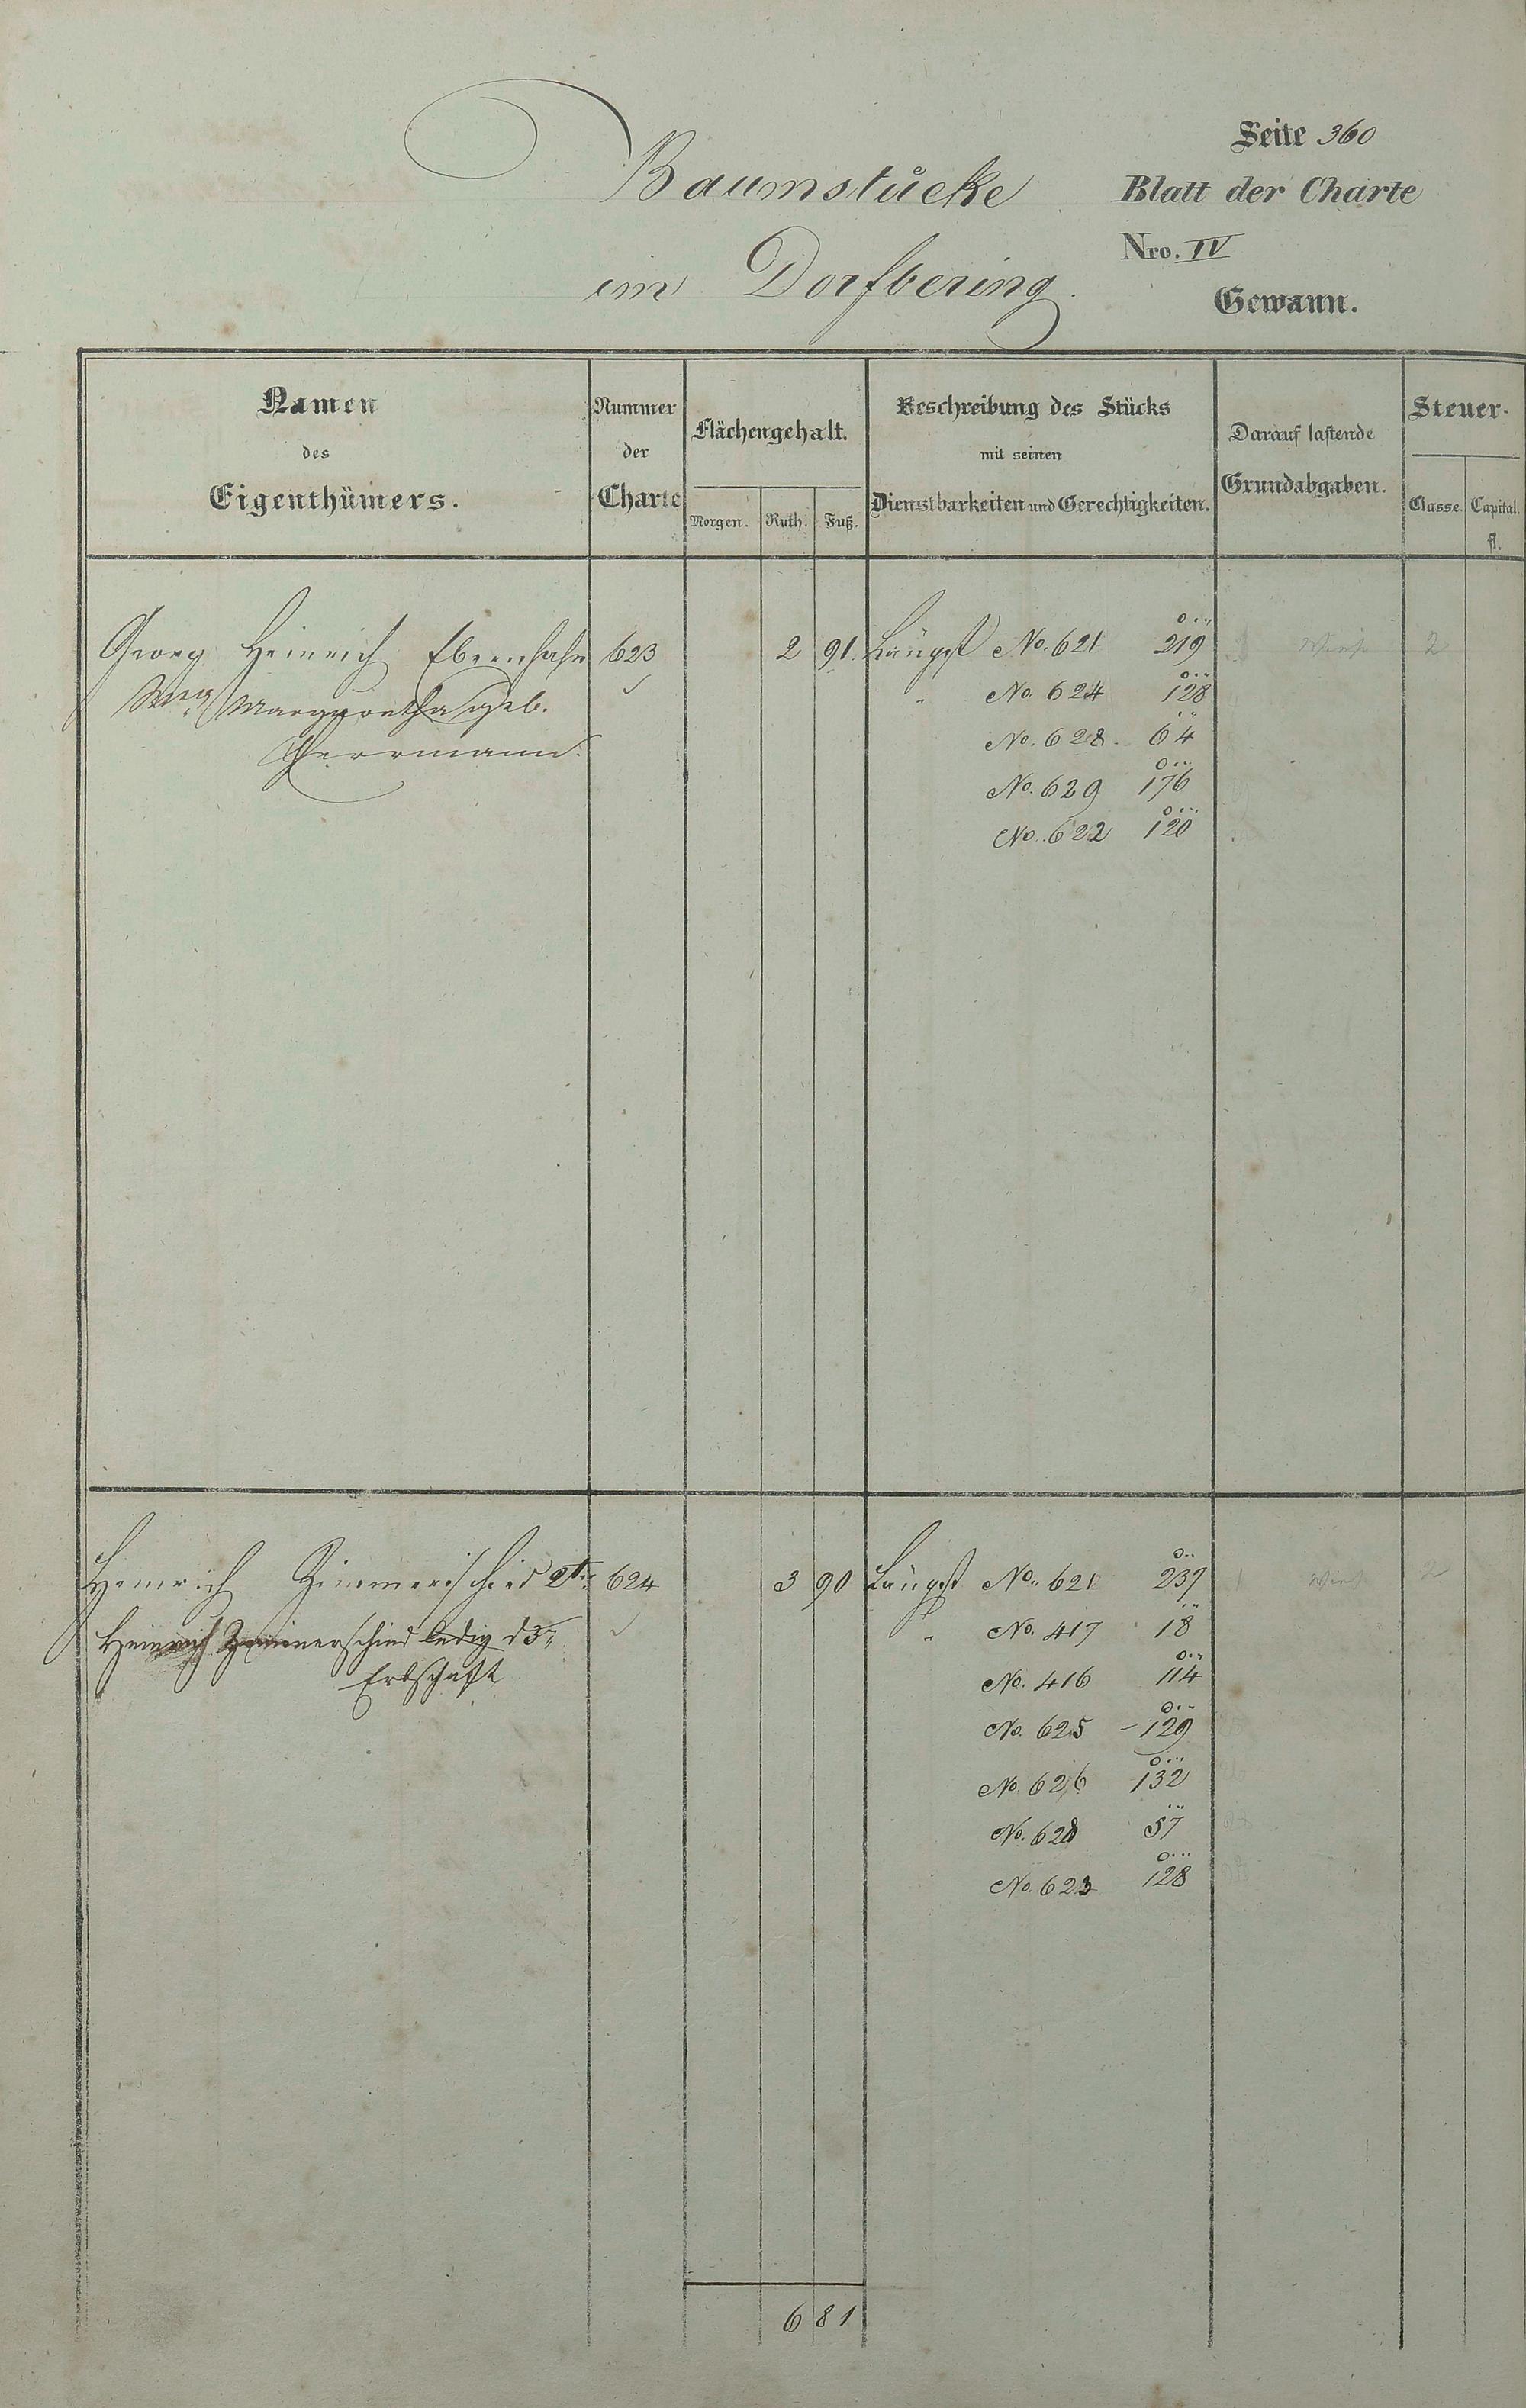 Seite 360
Baumstücke
Blatt der Charte
Nro. IV
im Dorfbering.
Gewann.
Namen des Eigenthümers.
Nummer der Charte
Flächengehalt.
Morgen. Ruth. Fuß.
Beschreibung des Stücks mit seinen Dienstbarkeiten und Gerechtigkeiten.
Darauf lastende Grundabgaben.
Steuer-
Classe. Capital. fl.
Georg Heinrich Ebernhahn 623 2 91 Längst No. 621 219 2
Margaretha geb. " No. 624 128
Herrmann. No. 628 64
No. 629 176
No. 622 120
Heinrich Zimmerschied 2ter 624 3 90 Längst No. 621 237 2
Heinrich Zimmerschied ledig d 3n " No. 417 18
Erbschaft No. 416 114
No. 625 - 129
No. 626 132
No. 628 57
No. 623 128
6 81